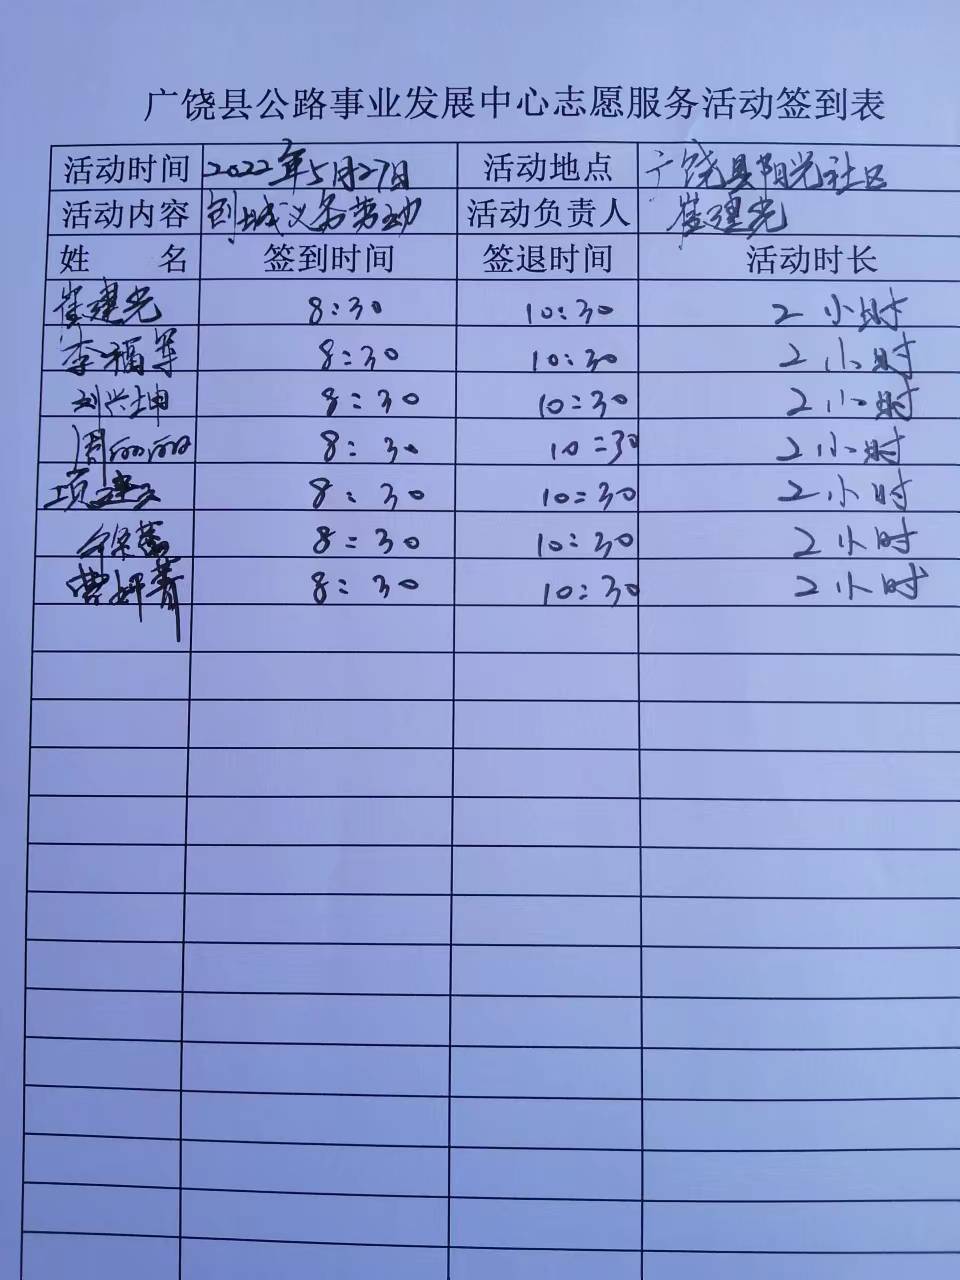 广饶县公路事业发展中心志愿服务活动签到表
活动时间 2022年5月27日 活动地点 广饶县阳光社区
活动内容 创城义务劳动 活动负责人 崔建光
姓 名 签到时间 签退时间 活动时长
崔建光 8:30 10:30 2小时
李福军 8:30 10:30 2小时
刘兴坤 8:30 10:30 2小时
周丽丽 8:30 10:30 2小时
项建 8:30 10:30 2小时
徐蕾 8:30 10:30 2小时
曹妍菁 8:30 10:30 2小时